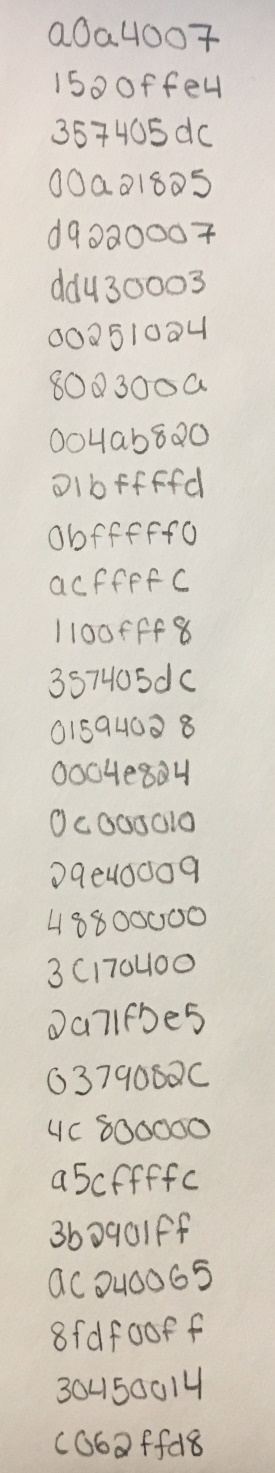 a0a40007
1520ffe4
357405dc
00a21825
d9220007
dd430003
00251024
8023000a
004ab820
21bffffd
0bfffff0
acffffc
1100fff8
357405dc
01594028
0004e824
0c000010
29e40009
48800000
3C170400
2a71f5e5
0379082C
4c800000
a5cffffc
3b2901ff
ac240065
8fdf00ff
30450014
c062ffd8